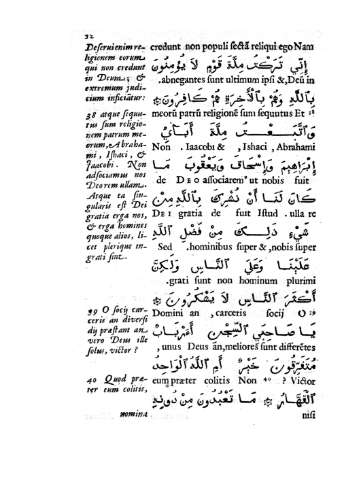 32
Deserui enim re-
ligionem eorum
qui non credunt
in Deum; &
extremum judi-
cium inficiātur:
38 atque sequu-
tus sum religio-
nem patrum me-
orum, Abraha-
mi, Ishaci, &
Jaacobi. Non
adsociamus nos
Deo rem ullam.
Atque ta sin-
gularis est Dei
gratia erga nos,
& erga homines
quosque alios, li-
cet plerique in-
grati sint.
39 O socij car-
ceris an diversi
dij præstant an
vero Deus ille
solus, victor?
40 Quod præ-
ter eum colitis,
nomina
credunt non populi sectā reliqui ego Nam
إِنِّي تَرَكْتُ مِلَّةَ قَوْمٍ لَا يُؤْمِنُونَ
abnegantes sunt ultimum ipsi &, Deū in
بِاللَّهِ وَهُمْ بِالْآخِرَةِ هُمْ كَافِرُونَ
meorū patrū religionē sum sequutus Et 38
وَاتَّبَعْتُ مِلَّةَ آبَائِي
Non , Iaacobi & , Ishaci , Abrahami
إِبْرَاهِيمَ وَإِسْحَاقَ وَيَعْقُوبَ مَا
de DEO associarem⁹ ut nobis fuit
كَانَ لَنَا أَنْ نُشْرِكَ بِاللَّهِ مِنْ
DEI gratia de fuit Istud . ulla re
شَيْءٍ ذَلِكَ مِنْ فَضْلِ اللَّهِ
Sed . hominibus super & , nobis super
عَلَيْنَا وَعَلَى النَّاسِ وَلَكِنَّ
. grati sunt non hominum plurimi
أَكْثَرَ النَّاسِ لَا يَشْكُرُونَ
Domini an , carceris socij O 39
يَا صَاحِبَيِ السِّجْنِ أَأَرْبَابٌ
, unus Deus an, meliores sunt differētes
مُتَفَرِّقُونَ خَيْرٌ أَمِ اللَّهُ الْوَاحِدُ
eum præter colitis Non 40 ? Victor
الْقَهَّارُ مَا تَعْبُدُونَ مِنْ دُونِهِ
nisi